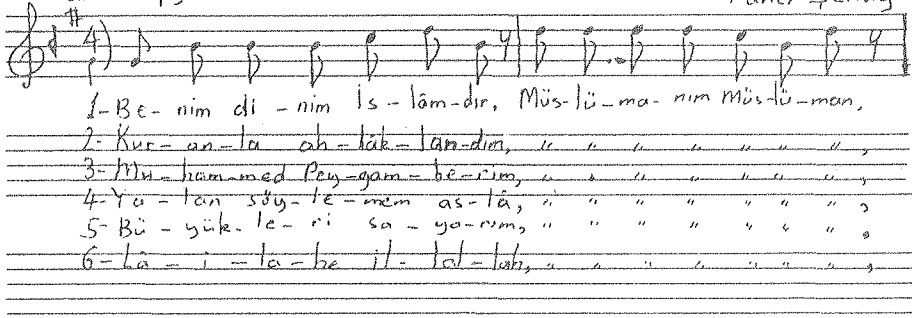 4
1-Be-nim di-nim İs-lâm-dır, Müs-lü-ma-nım Müs-lü-man,
2- Kur-an-la ah-lâk-lan-dım, " " " " " " ",
3- Mu-ham-med Pey-gam-be-rim, " " " " " " ",
4- Ya-lan söy-le-mem as-lâ, " " " " " " ",
5- Bü-yük-le-ri sa-ya-rım, " " " " " " ",
6- Lâ-i-la-he il-lal-lah, " " " " " " ",